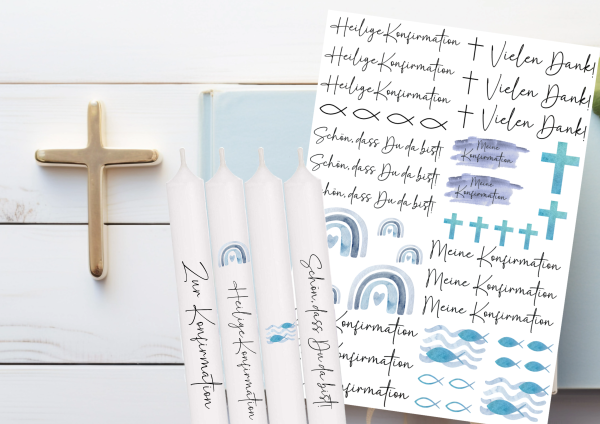 Heilige Konfirmation
Heilige Konfirmation
Heilige Konfirmation
Vielen Dank!
Vielen Dank!
Vielen Dank!
Schön, dass Du da bist!
Schön, dass Du da bist!
Schön, dass Du da bist!
Meine
Konfirmation
Meine
Konfirmation
Meine Konfirmation
Meine Konfirmation
Meine Konfirmation
Konfirmation
Konfirmation
Konfirmation
Zur Konfirmation
Heilige Konfirmation
Schön, dass Du da bist!